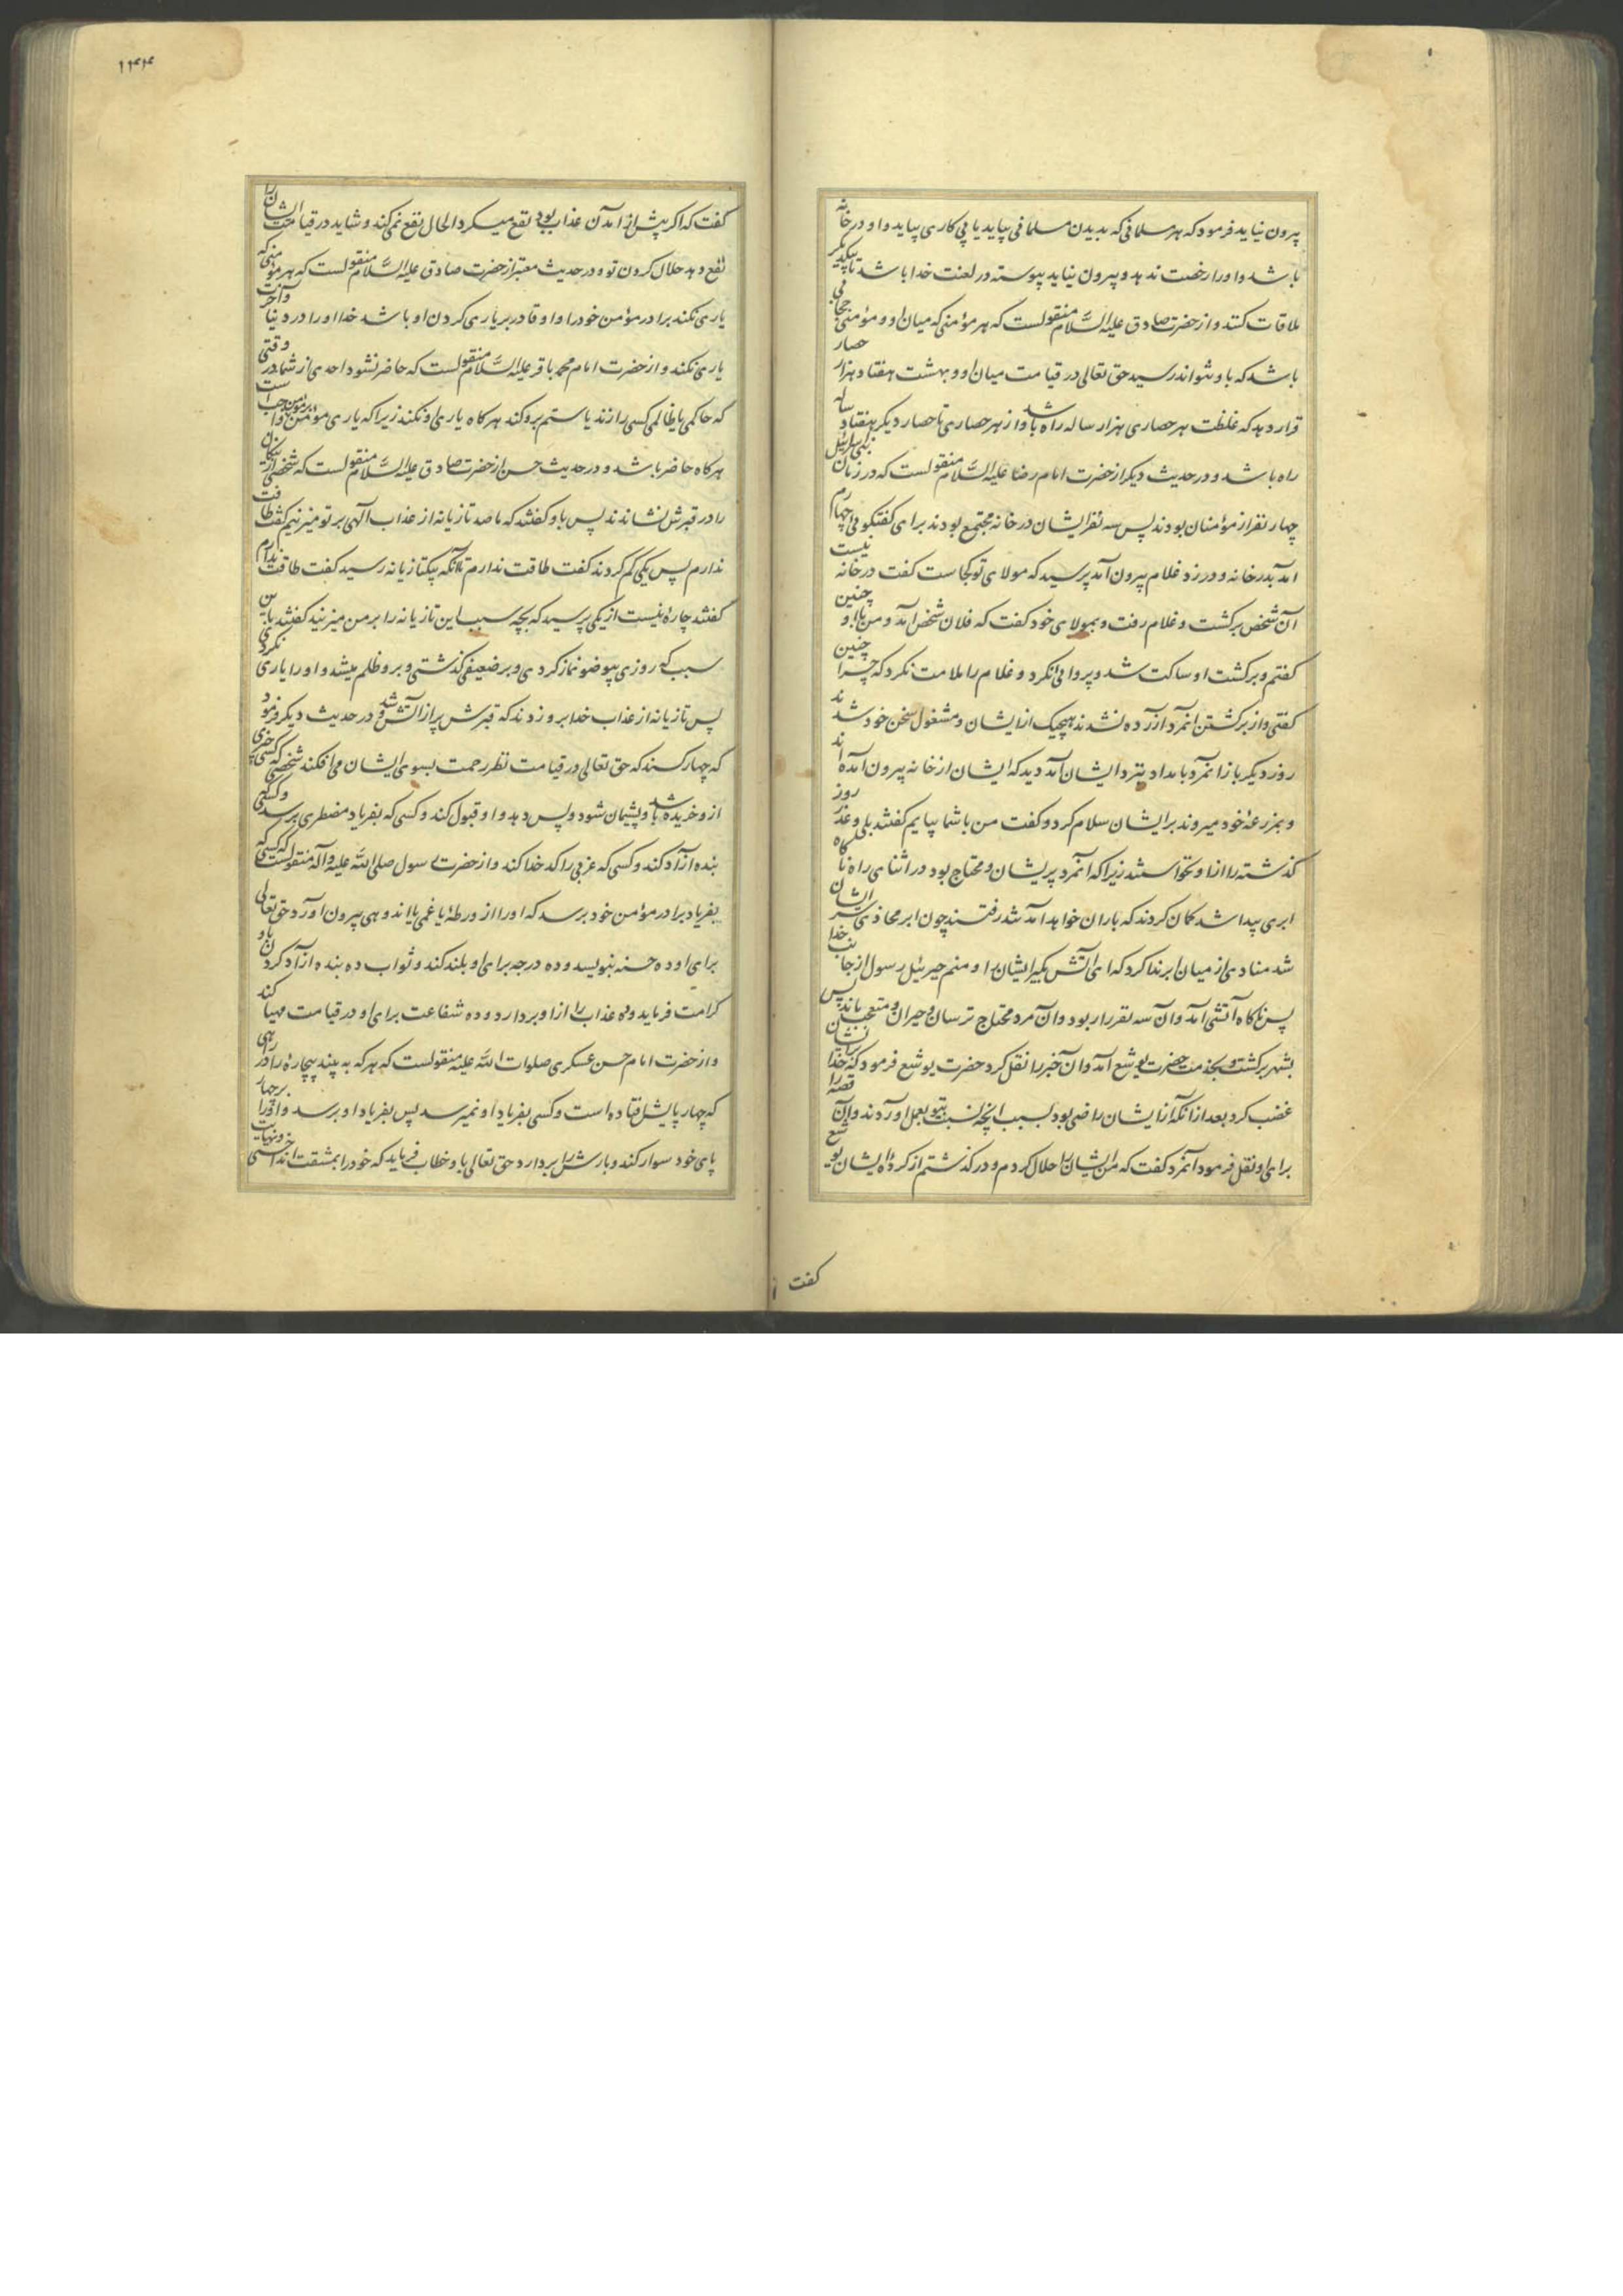 بیرون نیاید فرمود که هر مسلمانی که بدیدن مسلمانی بیاید یا پی کاری بیاید و او در خانه
باشد و او را رخصت ندهد و بیرون نیاید پیوسته در لعنت خدا باشد تا بیکدیگر
ملاقات کنند و از حضرت صادق علیه السَّلام منقولست که هر مؤمنی که میان او و مؤمنی حجابی
باشد که باو نتواند رسید حق تعالی در قیامت میان او و بهشت هفتاد هزار حصار
قرار دهد که غلظت هر حصاری هزار ساله راه باشد و از هر حصاری تا حصار دیگر هفتاد ساله
راه باشد و در حدیث دیگر از حضرت امام رضا علیه السَّلام منقولست که در زمان بنی اسرائیل
چهار نفر از مؤمنان بودند پس سه نفر ایشان در خانه مجتمع بودند برای کفتکوئی چهارم
آمد بدر خانه و در زد غلام بیرون آمد پرسید که مولای تو کجاست کفت در خانه نیست
آن شخص برکشت و غلام رفت و بمولای خود کفت که فلان شخص آمد و من باو چنین
کفتم و برکشت او ساکت شد و پروائی نکرد و غلام را ملامت نکرد که چرا چنین
کفتی و از برکشتن آنمرد آزرده نشدند هیچیک از ایشان و مشغول سخن خود شدند
روز دیکر باز آنمرد بامداد بنزد ایشان آمد دید که ایشان از خانه بیرون آمده اند
و بمزرعهٔ خود میروند بر ایشان سلام کرد و کفت من با شما بیایم کفتند بلی و عذر روز
کذشته را از او نخواستند زیرا که آنمرد پریشان و محتاج بود در اثنای راه ناکاه
ابری پیدا شد کمان کردند که باران خواهد آمد تند رفتند چون ابر محاذی سر ایشان
شد منادی از میان ابر ندا کرد که ای آتش بکیر ایشان را و منم جبرئیل رسول از جانب خدا
پس ناکاه آتشی آمد و آن سه نفر را ربود و آن مرد محتاج ترسان و حیران و متعجب ماند پس
بشهر برکشت و بخدمت حضرت یوشع آمد و آن خبر را نقل کرد حضرت یوشع فرمود که خدا بر ایشان
غضب کرد بعد از آنکه از ایشان راضی بود بسبب آنچه نسبت بتو بعمل آوردند و آن قصه را
برای او نقل فرمود آنمرد کفت که من ایشان را حلال کردم و در کذشتم از کردهٔ ایشان یوشع
کفت
۱۴۴
کفت که اکر پیش از آمدن عذاب بود نفع میکرد الحال نفع نمی کند و شاید در قیامت ایشان را
نفع دهد حلال کردن تو و در حدیث معتبر از حضرت صادق علیه السَّلام منقولست که هر مؤمنی که
یاری نکند برادر مؤمن خود را و او قادر بر یاری کردن او باشد خدا او را در دنیا و آخرت
یاری نکند و از حضرت امام محمد باقر علیه السَّلام منقولست که حاضر نشود احدی از شما در وقتی
که حاکمی یا ظالمی کسی را زند یا ستم بر او کند هرکاه یاری او نکند زیرا که یاری مؤمن بر مؤمن واجب است
هرکاه حاضر باشد و در حدیث حسن از حضرت صادق علیه السَّلام منقولست که شخصی از نیکان
را در قبرش نشاندند پس باو کفتند که ما صد تازیانه از عذاب الهی بر تو میزنیم کفت طاقت
ندارم پس یکی کم کردند کفت طاقت ندارم تا آنکه بیکتازیانه رسید کفت طاقت ندارم
کفتند چاره نیست از یکی پرسید که بچه سبب این تازیانه را بر من میزنید کفتند باین
سبب که روزی بیوضو نماز کردی و بر ضعیفی کذشتی و بر او ظلم میشد و او را یاری نکردی
پس تازیانه از عذاب خدا بر او زدند که قبرش پر از آتش شد و در حدیث دیکر فرمود
که چهار کسند که حق تعالی در قیامت نظر رحمت بسوی ایشان می افکند شخصی که کسی چیزی
از او خریده باشد و پشیمان شود و پس دهد و او قبول کند و کسی که بفریاد مضطری برسد و کسی که
بنده آزاد کند و کسی که عزبی را کدخدا کند و از حضرت رسول صلی الله علیه و آله منقولست که کسی که
بفریاد برادر مؤمن خود برسد که او را از ورطهٔ یا غمی یا اندوهی بیرون آورد حق تعالی
برای او ده حسنه بنویسد و ده درجه برای او بلند کند و ثواب ده بنده آزاد کردن باو
کرامت فرماید و ده عذاب را از او بردارد و ده شفاعت برای او در قیامت مهیا کند
و از حضرت امام حسن عسکری صلوات الله علیه منقولست که هر که به بیند بیچاره را در راهی
که چهارپایش افتاده است و کسی بفریاد او نمیرسد پس بفریاد او برسد و او را بر چهار
پای خود سوار کند و بارش را بردارد حق تعالی باو خطاب فرماید که خود را بمشقت انداختی و نهایت